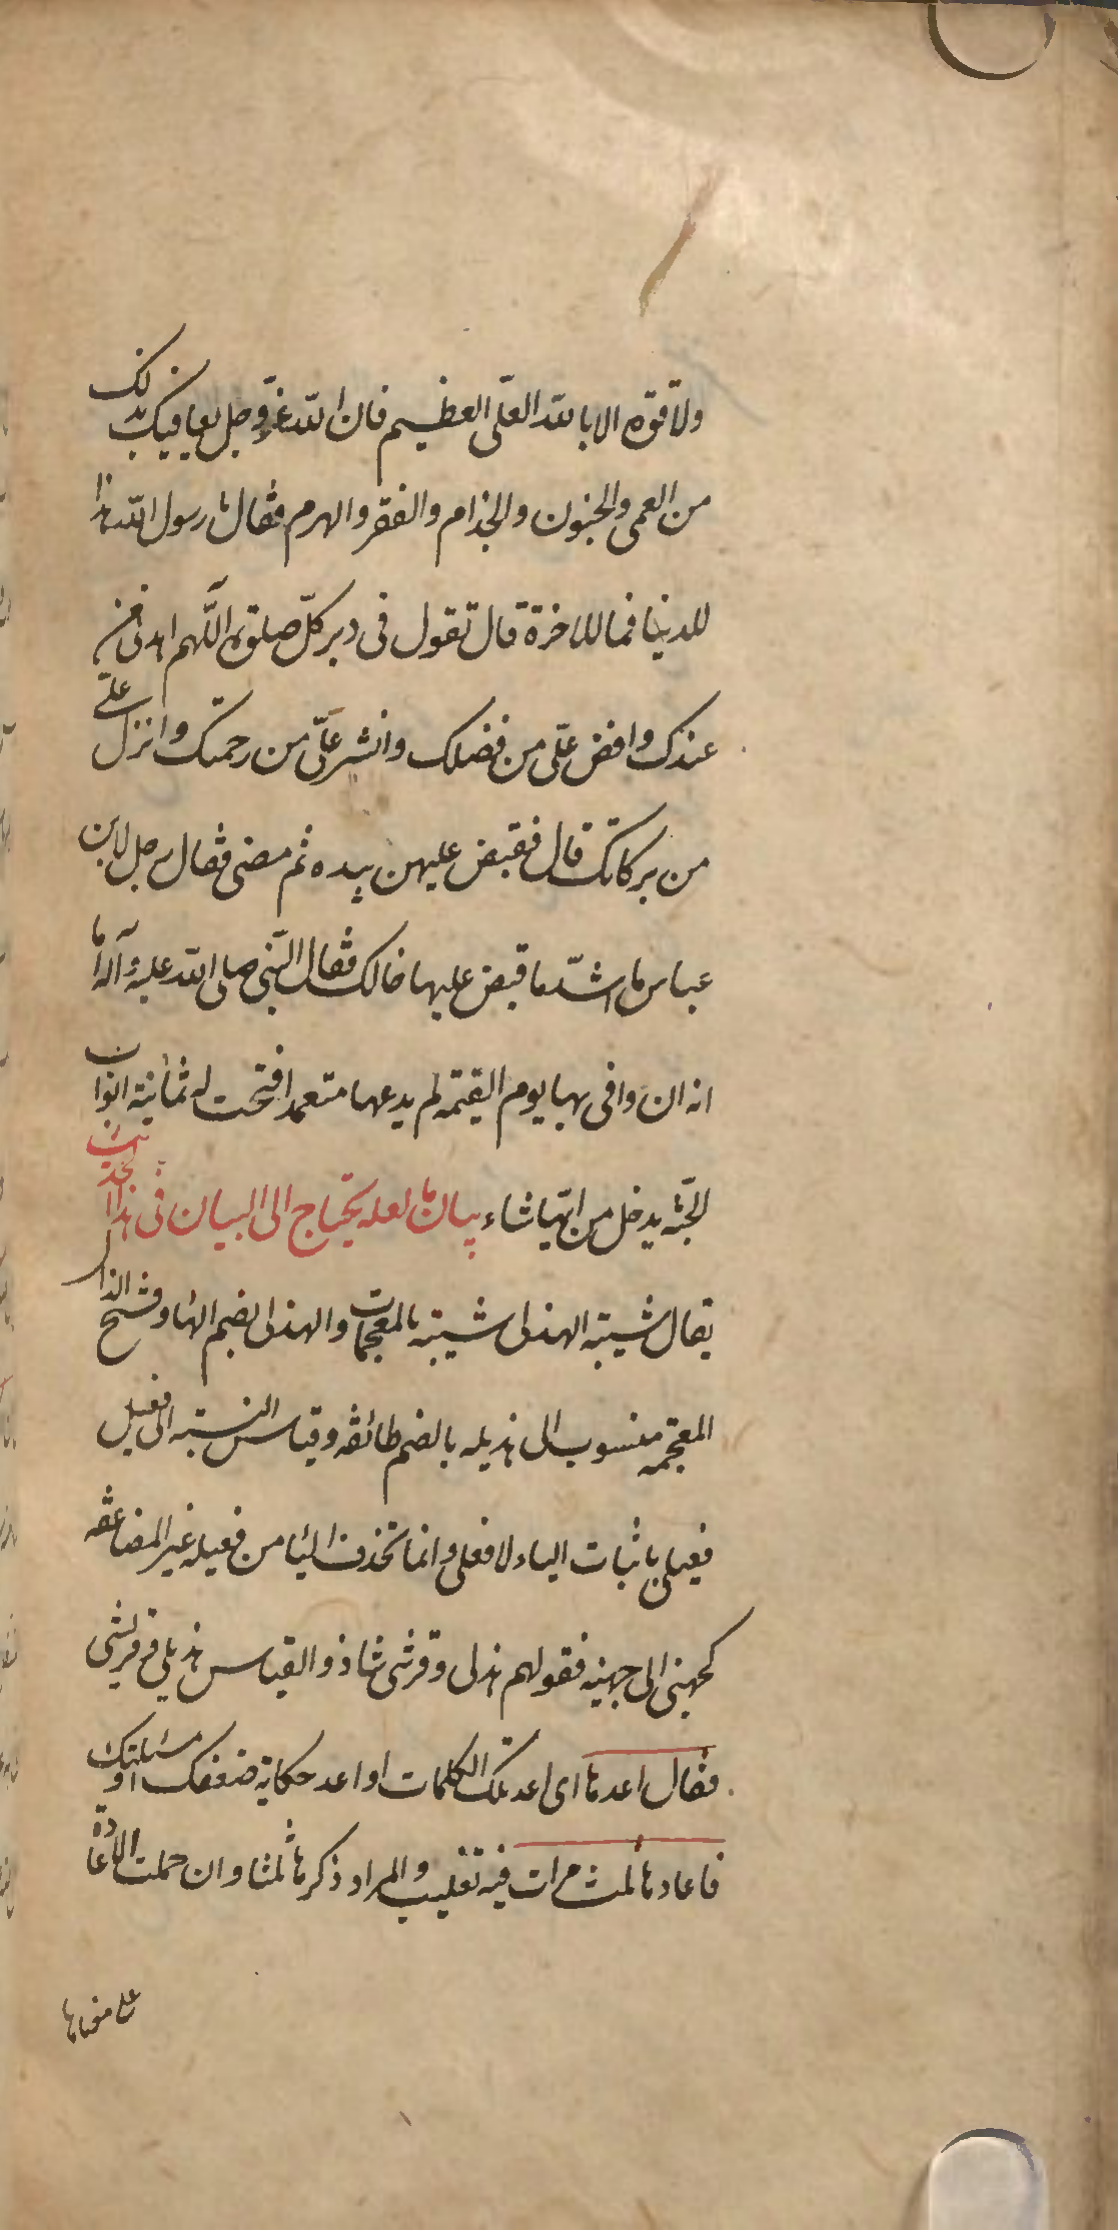 ولا قوة الا بالله العلى العظيم فان الله عز وجل يعافيك بذلك
من العمى والجنون والجذام والفقر والهرم فقال يا رسول الله هذا
للدنيا فما للاخرة قال تقول فى دبر كل صلوة اللهم اهدنى من
عندك وافض على من فضلك وانشر على من رحمتك وانزل على
من بركاتك قال فقبض عليهن بيده ثم مضى فقال رجل لابن
عباس ما اشد ما قبض عليها خالك فقال النبى صلى الله عليه وآله اما
انه ان وافى بها يوم القيمة لم يدعها متعمدا فتحت له ثمانية ابواب
الجنة يدخل من ايها شاء بيان ما لعله يحتاج الى البيان فى هذا الحديث
يقال شيبة الهذلى شيبة بالمعجمات والهذلى بضم الهاء وفتح الذال
المعجمة منسوب الى هذيله بالضم طائفه وقياس النسبة الى فعيل
فعيلى باثبات الياء لا فعلى وانما تحذف الياء من فعيله غير المضاعفه
كجهنى الى جهينه فقولهم هذلى وقرشى شاذ والقياس هذيلى وقريشى
فقال اعدها اى اعد تلك الكلمات او اعد حكاية ضعفك او مسئلتك
فاعادها ثلث مرات فيه تغليب والمراد ذكرها ثلثا وان حملت الاعادة
على معناها